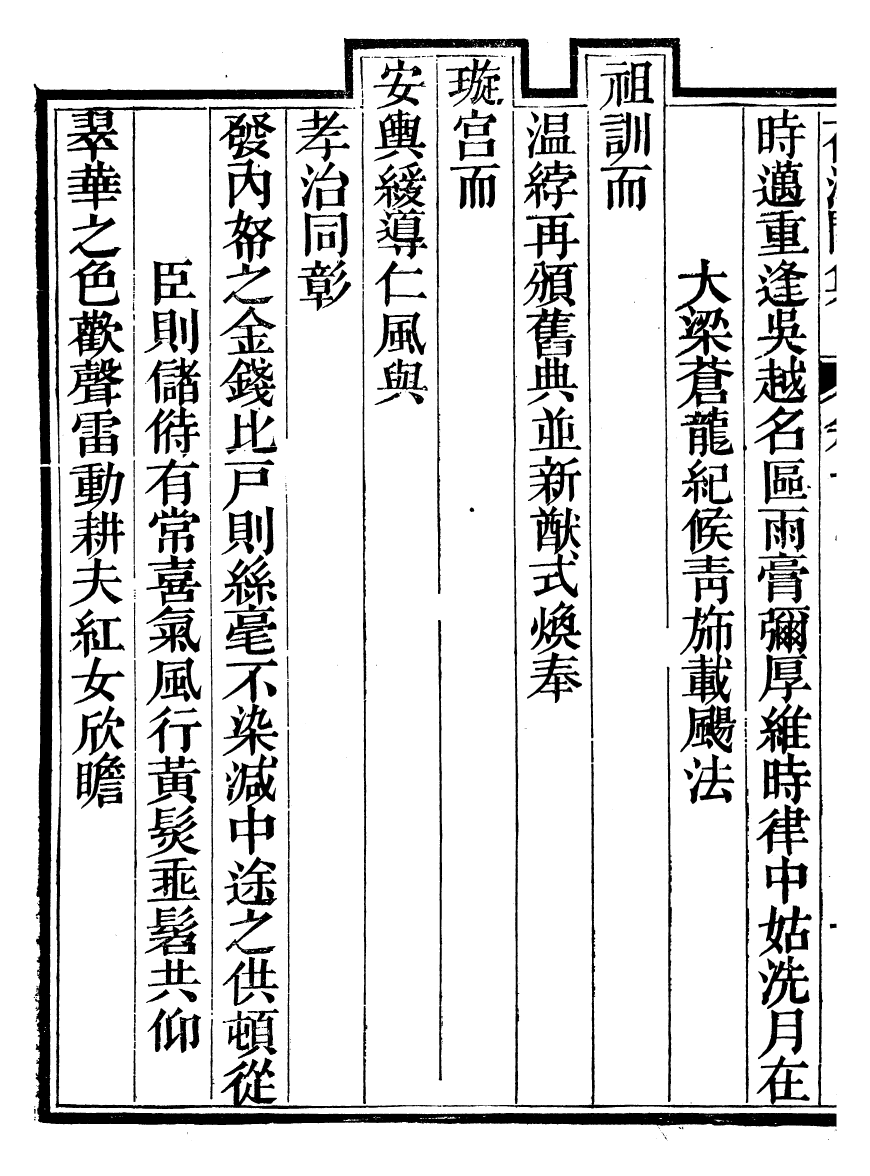 時邁重逢吳越名區雨膏彌厚維時律中姑洗月在
大梁蒼龍紀候靑斾載颺法
祖訓而
温綍再頒舊典並新猷式煥奉
璇宫而
安輿緩導仁風與
孝治同彰
發內帑之金錢比戸則絲毫不染減中途之供頓從
臣則儲偫有常喜氣風行黃髮垂髫共仰
翠華之色歡聲雷動耕夫紅女欣瞻